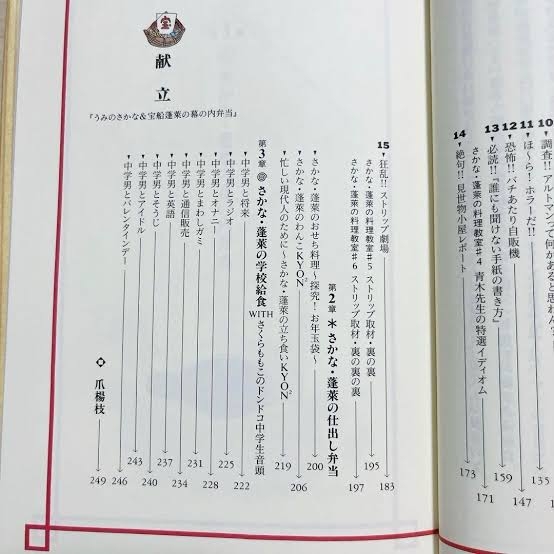 10 調査!!アルトマンって何があると思わん
11 ほ〜ら!ホラーだ!!
12 恐怖!!バチあたり自販機 147
13 必読!!「誰にも聞けない手紙の書き方」 159
さかな・蓬莱の料理教室♯4 青木先生の特選イディオム 171
14 絶句!!見世物小屋レポート 173
宝
献立
『うみのさかな&宝船蓬莱の幕の内弁当』
15 狂乱!!ストリップ劇場 183
さかな・蓬莱の料理教室♯5 ストリップ取材・裏の裏 195
さかな・蓬莱の料理教室♯6 ストリップ取材・裏の裏の裏 197
第2章 ＊ さかな・蓬莱の仕出し弁当
さかな・蓬莱のおせち料理〜探究!お年玉袋〜 200
さかな・蓬莱のわんこKYON² 206
忙しい現代人のために〜さかな・蓬莱の立ち食いKYON² 219
第3章 ◎ さかな・蓬莱の学校給食 WITH さくらももこのドンドコ中学生音頭
中学男と将来 222
中学男とラジオ 225
中学男とオナニー 228
中学男とまわしガミ 231
中学男と通信販売 234
中学男と英語 237
中学男とそうじ 240
中学男とアイドル 243
中学男とバレンタインデー 246
爪楊枝 249